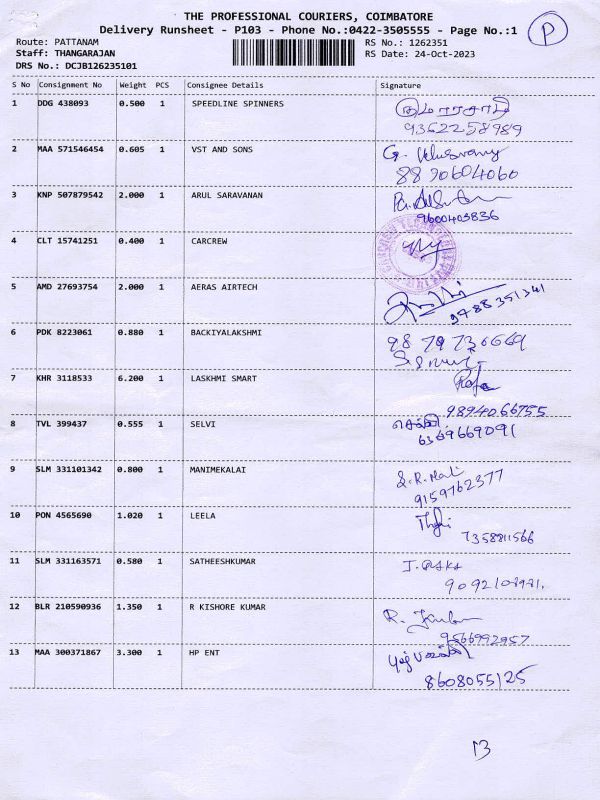 THE PROFESSIONAL COURIERS, COIMBATORE
Delivery Runsheet - P103 - Phone No.:0422-3505555 - Page No.:1
P
Route: PATTANAM RS No.: 1262351
Staff: THANGARAJAN RS Date: 24-Oct-2023
DRS No.: DCJB126235101
S No Consignment No Weight PCS Consignee Details Signature
1 DDG 438093 0.500 1 SPEEDLINE SPINNERS
9362258989
2 MAA 571546454 0.605 1 VST AND SONS
8870604060
3 KNP 507879542 2.000 1 ARUL SARAVANAN
9600403836
4 CLT 15741251 0.400 1 CARCREW
5 AMD 27693754 2.000 1 AERAS AIRTECH
9788351341
6 PDK 8223061 0.880 1 BACKIYALAKSHMI
7 KHR 3118533 6.200 1 LASKHMI SMART
9894066755
8 TVL 399437 0.555 1 SELVI செல்வி
6369669091
9 SLM 331101342 0.800 1 MANIMEKALAI
S.R. Mali
9159762377
10 PON 4565690 1.020 1 LEELA
7358811566
11 SLM 331163571 0.580 1 SATHEESHKUMAR
12 BLR 210590936 1.350 1 R KISHORE KUMAR
9566992957
13 MAA 300371867 3.300 1 HP ENT
8608055125
13